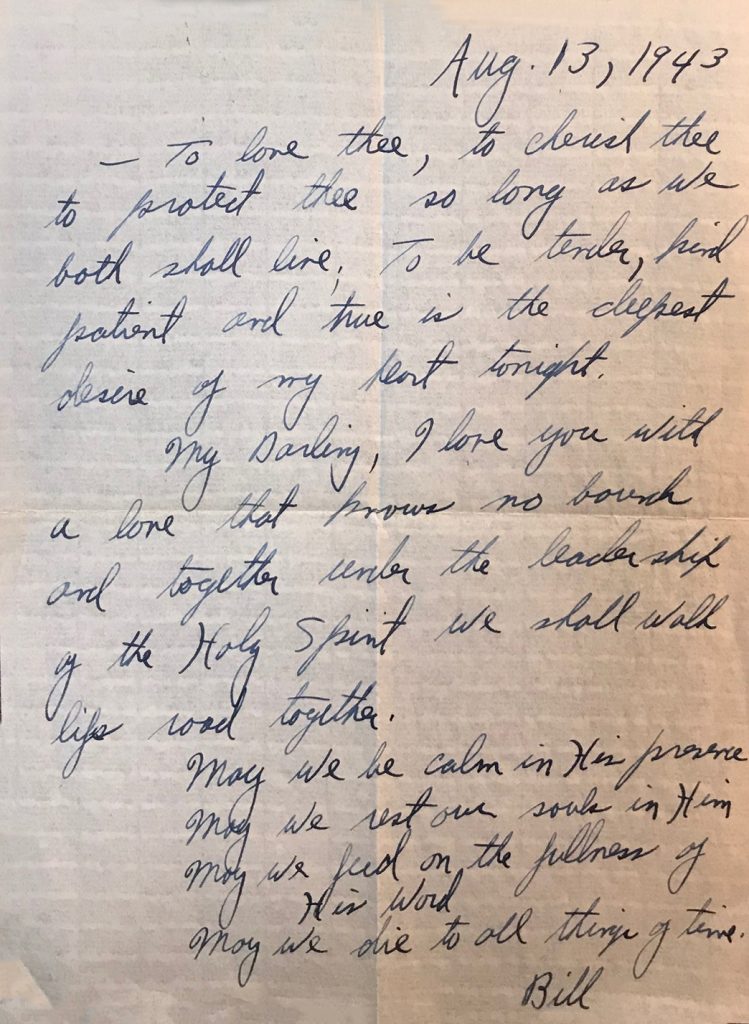 Aug. 13, 1943
— To love thee, to cherish thee
to protect thee so long as we
both shall live; To be tender, kind
patient and true is the deepest
desire of my heart tonight.
My Darling, I love you with
a love that knows no bounds
and together under the leadership
of the Holy Spirit we shall walk
lifes road together.
May we be calm in His presence
May we rest our souls in Him
May we feed on the fullness of
His Word
May we die to all things of time.
Bill